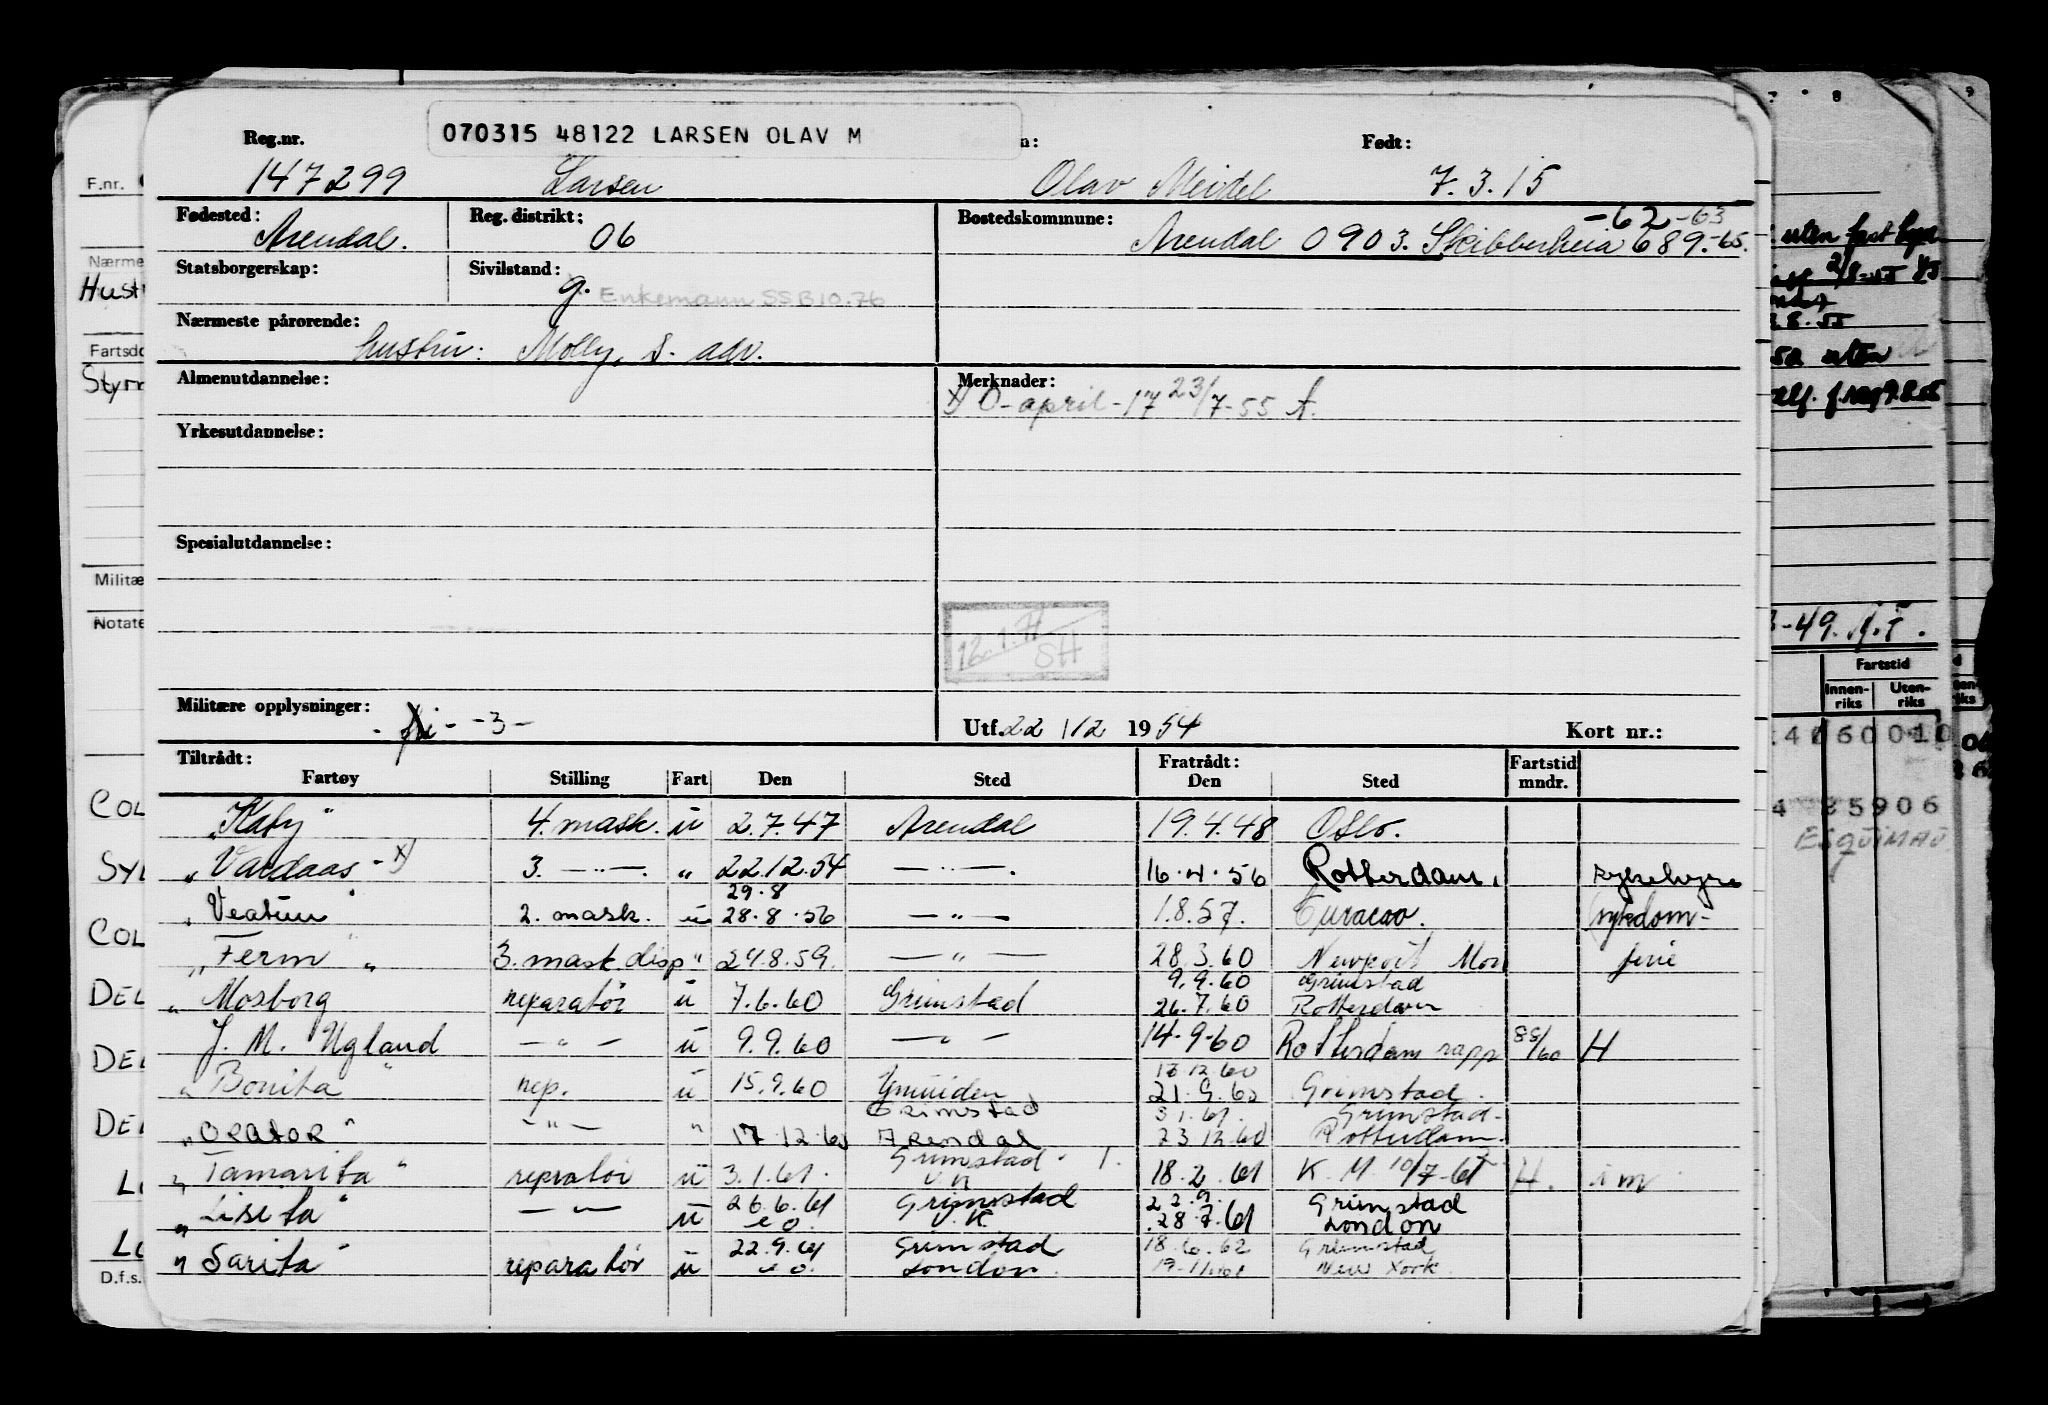 070315 48122 LARSEN OLAV M
Reg.nr. n: Født:
147299 Larsen Olav Meidel 7.3.15
Fødested: Arendal. Reg. distrikt: 06 Bostedskommune: Arendal 0903. Skibberheia 689.-65.
-62-63
Statsborgerskap: Sivilstand: g. Enkemann SSB 10.76
Nærmeste pårørende:
hustru: Molly, s. adr.
Almenutdannelse: Merknader:
x) O-april-17 23/7-55 A.
Yrkesutdannelse:
Spesialutdannelse:
12.1.71
SH
Militære opplysninger: - fri - -3- Utf. 22/12 1954 Kort nr.:
Tiltrådt: Fratrådt:
Fartøy Stilling Fart Den Sted Den Sted Fartstid mndr.
"Katy" 4. mask. u 2.7.47 Arendal 19.4.48 Oslo.
"Vardaas - x) 3. —"—. " 22.12.54 —"—. 16.4.56 Rotterdam. sykehyre
29.8
"Veatun" 2. mask. u 28.8.56 —"— 1.8.57. Curacao. sykdom-
"Ferm" 3. mask. disp " 24.8.59. —"— 28.3.60 ferie
9.9.60 Grimstad
"Mosborg reparatör u 7.6.60 Grimstad 26.7.60 Rotterdam
J. M. Ugland —"— u 9.9.60 —"— 14-9-60 Rotterdam rapp 88/60 H
17.12.60
"Bonita rep. u 15.9.60 Ymuiden 21.9.60 Grimstad.
Grimstad 3.1.61. Grimstad-
"ORATOR" —"— " 17.12.60 Arendal 23.12.60 Rotterdam.
Grimstad
"Tamarita" repratör u 3.1.61. 18.2.61 K. M. 10/7-61 H. i m
26.6.61 Grimstad 22.9. Grimstad
"Lisita" —"— u U.K. 28.7.61 London
22.9.61 Grimstad 18.6.62 Grimstad
"Sarita" reparatör u London. New York.
F.nr.
Nærme
Hust
Fartsdo
Styrr
Militæ
Notate
COL
SYL
COL
DEL
DEL
DEL
Lo
Lo
D.f.s.
7 8 9
uten fast hyre
3-49. A.F.
Fartstid
Innen-
riks
Uten-
riks
ESQUIMAU